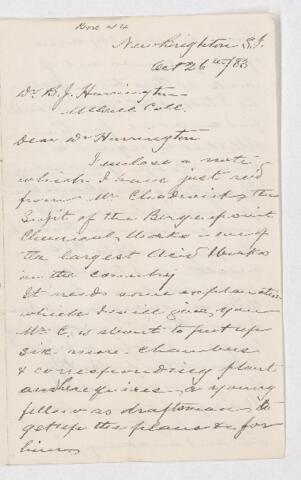 New Brighton S.I.
Oct 26th/83
Dr. B. J. Harrington
McGill Coll.
Dear Dr Harrington
I enclose a note
which I have just rec'd
from Mr Chadwick, the
Supt of the Bergenpoint
Chemical Works - one of
the largest Acid Works
in the country
It needs some explanation
which I will give you
Mr C. is about to put up
six more chambers
& corresponding plant
and requires a young
fellow as draftsman to
get up the plans &c for
him,